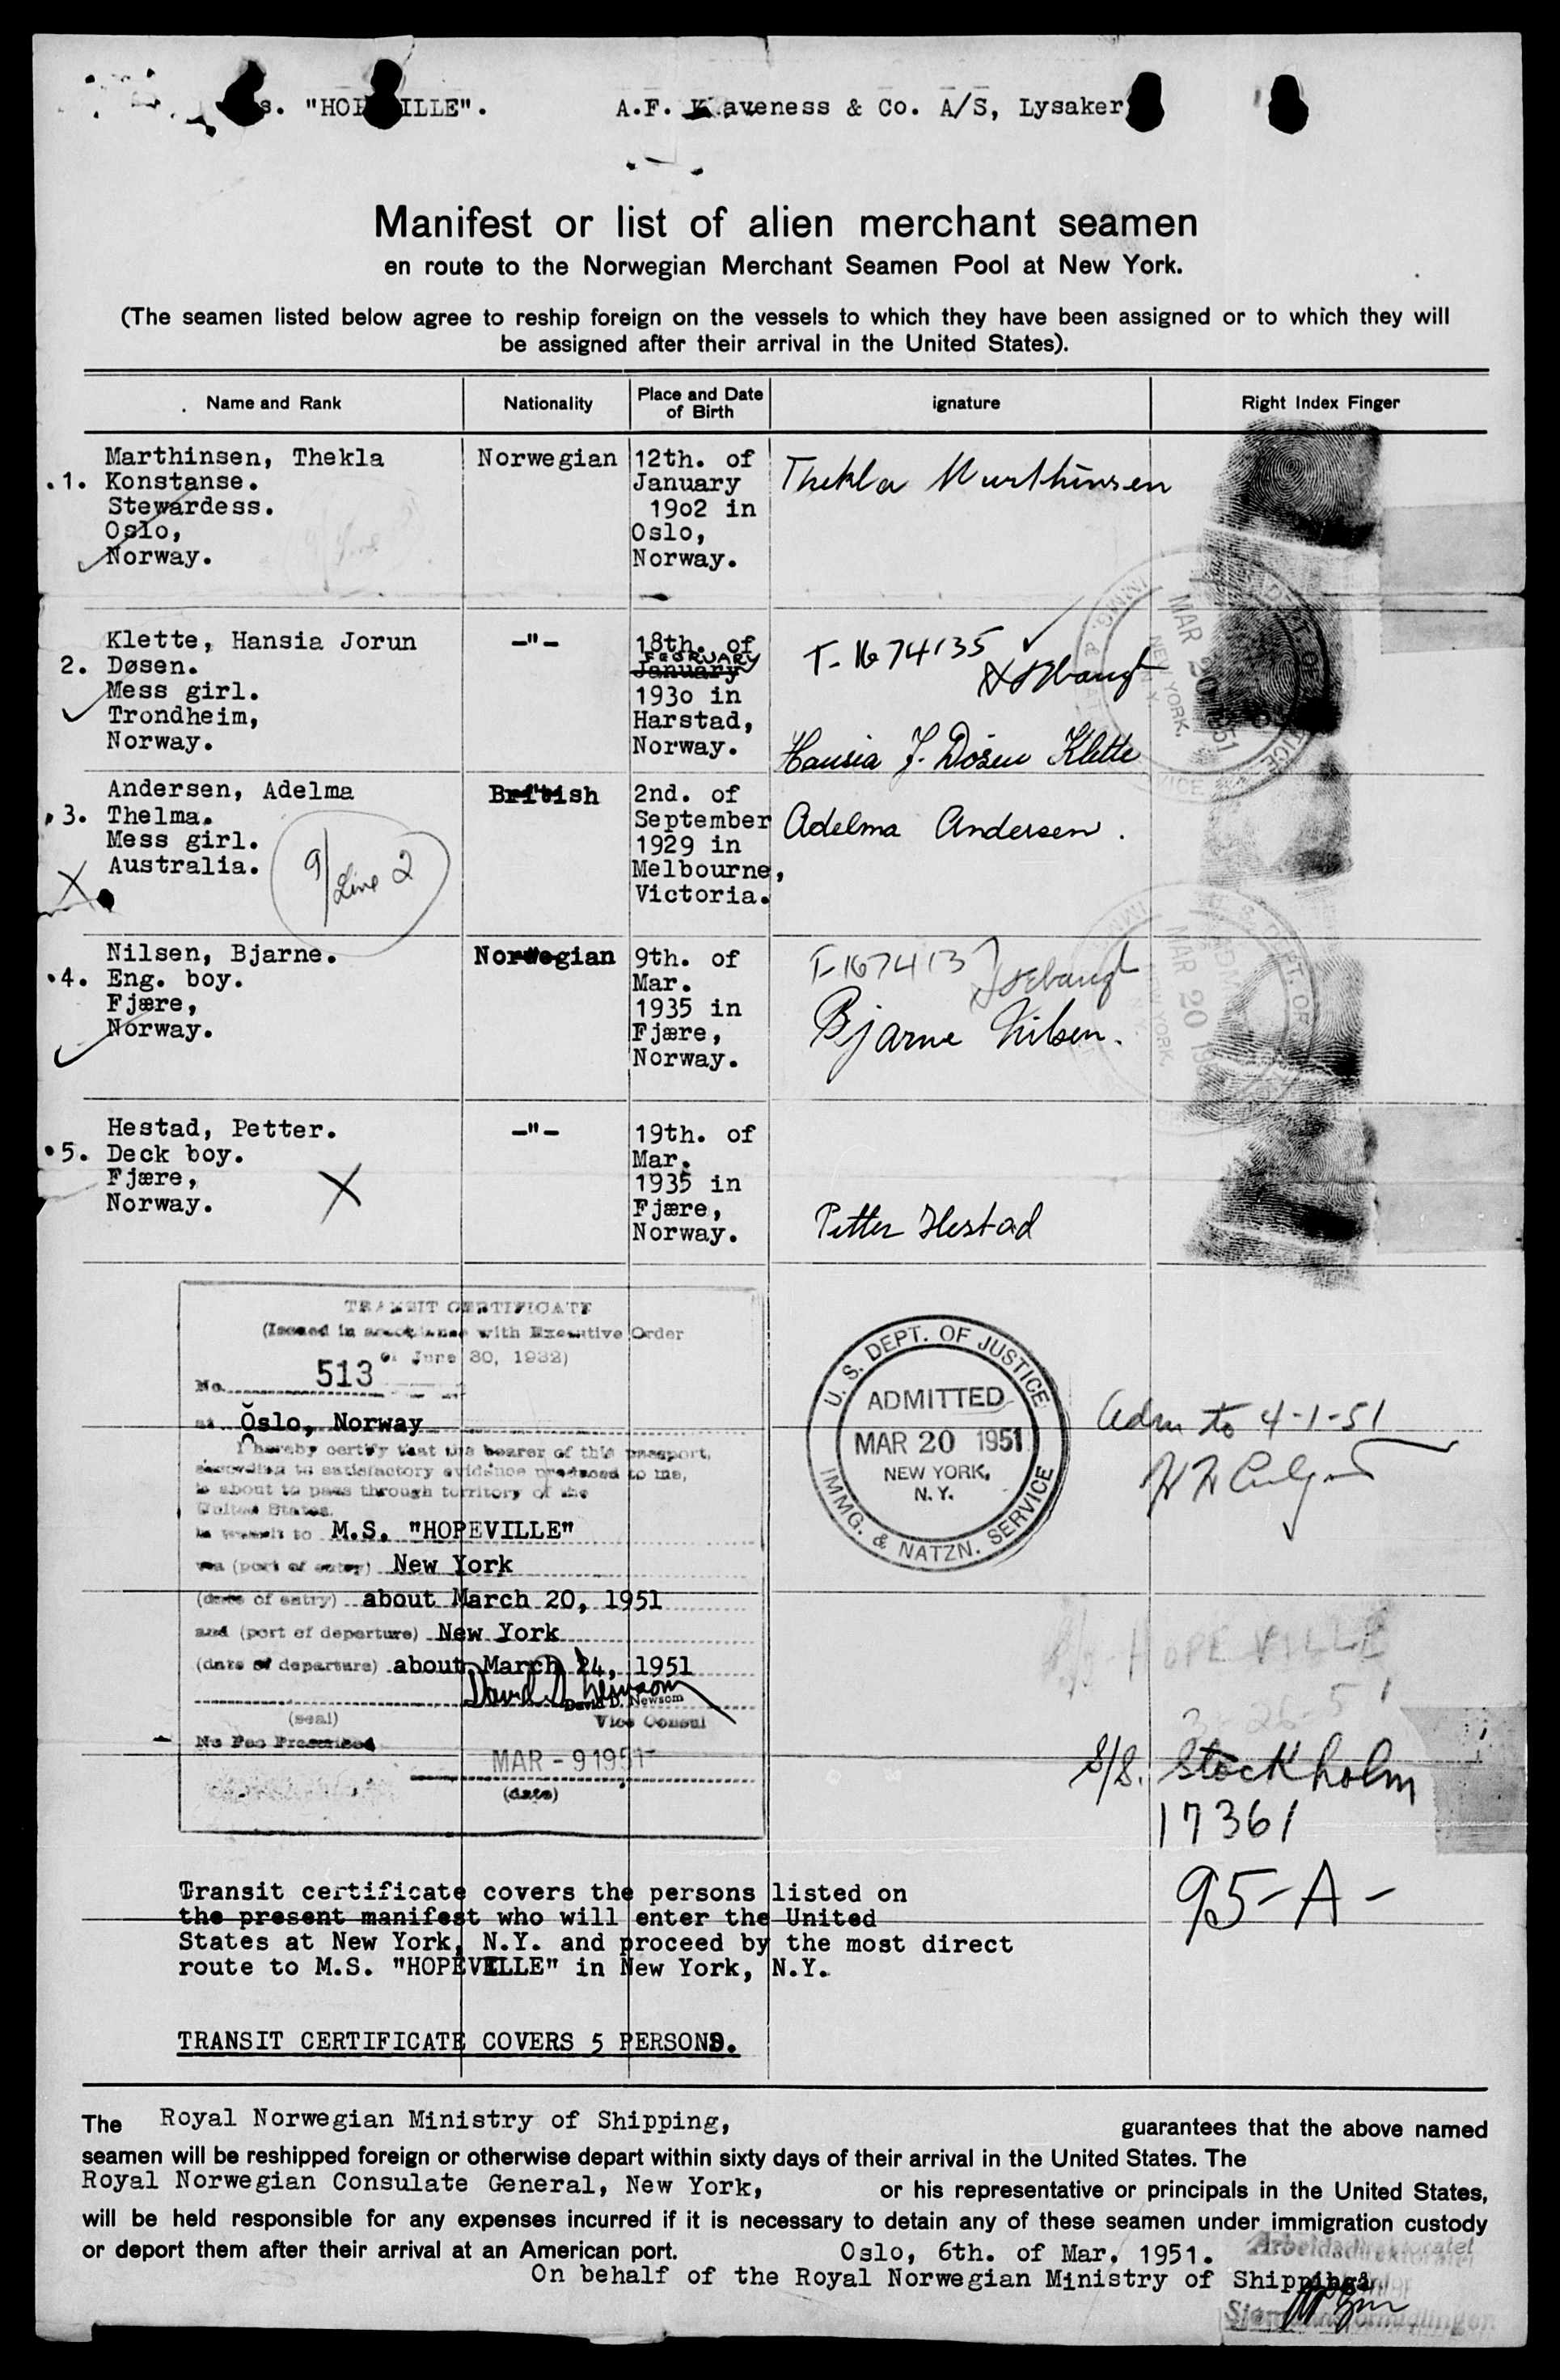 s. "HOPEVILLE". A.F. Klaveness & Co. A/S, Lysaker
Manifest or list of alien merchant seamen
en route to the Norwegian Merchant Seamen Pool at New York.
(The seamen listed below agree to reship foreign on the vessels to which they have been assigned or to which they will
be assigned after their arrival in the United States).
Name and Rank
Nationality
Place and Date
of Birth
ignature
Right Index Finger
.1.
Marthinsen, Thekla
Konstanse.
Stewardess.
Oslo,
Norway.
Norwegian
12th. of
January
19o2 in
Oslo,
Norway.
Thekla Marthinsen
2.
Klette, Hansia Jorun
Døsen.
Mess girl.
Trondheim,
Norway.
-"-
18th. of
FEBRUARY
January
193o in
Harstad,
Norway.
T-1674135
Hansia J. Døsen Klette
MAR 20 1951
NEW YORK,
3.
Andersen, Adelma
Thelma.
Mess girl.
Australia.
9/Line 2
British
2nd. of
September
1929 in
Melbourne,
Victoria.
Adelma Andersen.
.4.
Nilsen, Bjarne.
Eng. boy.
Fjære,
Norway.
Norwegian
9th. of
Mar.
1935 in
Fjære,
Norway.
T-1674137
Bjarne Nilsen.
MAR 20
NEW YORK,
.5.
Hestad, Petter.
Deck boy.
Fjære,
Norway.
-"-
19th. of
Mar.
1935 in
Fjære,
Norway.
Petter Hestad
TRANSIT CERTIFICATE
(Issued in accordance with Executive Order
of June 30, 1932)
No. 513
at Oslo, Norway
I hereby certify that the bearer of this passport,
according to satisfactory evidence produced to me,
is about to pass through territory of the
United States.
in transit to M.S. "HOPEVILLE"
via (port of entry) New York
(date of entry) about March 20, 1951
and (port of departure) New York
(date of departure) about March 24, 1951
David D. Newsom
David D. Newsom
(seal) Vice Consul
No Fee Prescribed
MAR - 9 1951
(date)
U. S. DEPT. OF JUSTICE
ADMITTED
MAR 20 1951
NEW YORK,
N. Y.
IMMG. & NATZN. SERVICE
Adm to 4-1-51
HOPEVILLE
3-26-51
S/S. Stockholm
17361
95-A-
Transit certificate covers the persons listed on
the present manifest who will enter the United
States at New York, N.Y. and proceed by the most direct
route to M.S. "HOPEVILLE" in New York, N.Y.
TRANSIT CERTIFICATE COVERS 5 PERSONS.
The Royal Norwegian Ministry of Shipping, guarantees that the above named
seamen will be reshipped foreign or otherwise depart within sixty days of their arrival in the United States. The
Royal Norwegian Consulate General, New York, or his representative or principals in the United States,
will be held responsible for any expenses incurred if it is necessary to detain any of these seamen under immigration custody
or deport them after their arrival at an American port. Oslo, 6th. of Mar. 1951.
Arbeidsdirektoratet
On behalf of the Royal Norwegian Ministry of Shipping